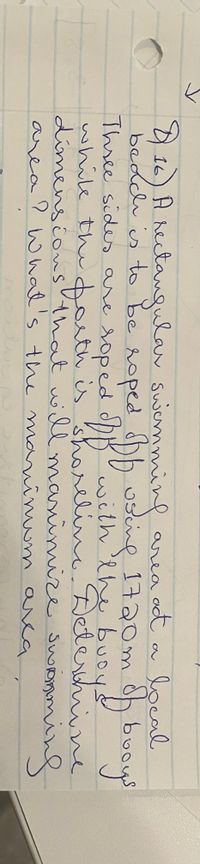 Q 16) A rectangular swimming area at a local
beach is to be roped off using 1720m of buoys
Three sides are roped off with the buoys
while the forth is shoreline. Determine
dimensions that will maximize swimming
area? What's the maximum area